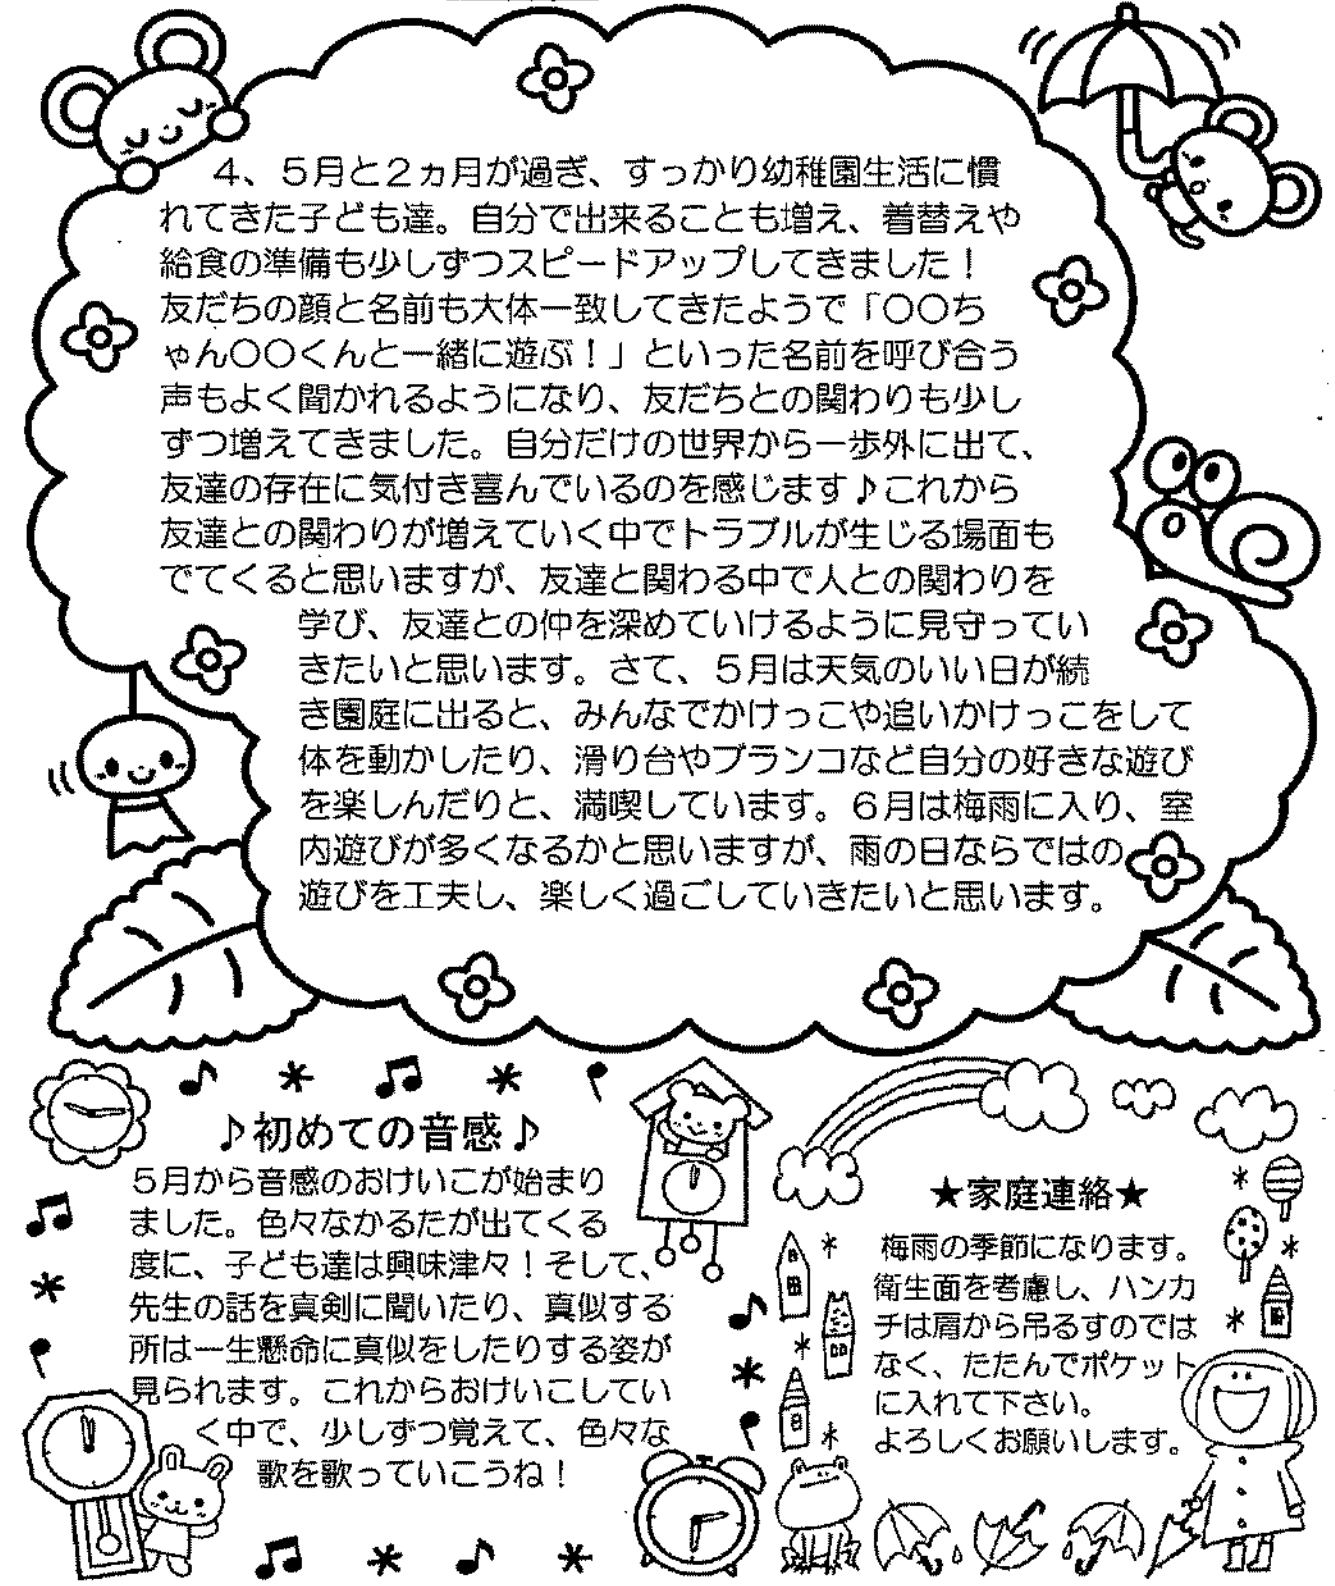 ４、５月と２ヵ月が過ぎ、すっかり幼稚園生活に慣
れてきた子ども達。自分で出来ることも増え、着替えや
給食の準備も少しずつスピードアップしてきました！
友だちの顔と名前も大体一致してきたようで「〇〇ち
ゃん〇〇くんと一緒に遊ぶ！」といった名前を呼び合う
声もよく聞かれるようになり、友だちとの関わりも少し
ずつ増えてきました。自分だけの世界から一歩外に出て、
友達の存在に気付き喜んでいるのを感じます♪これから
友達との関わりが増えていく中でトラブルが生じる場面も
でてくると思いますが、友達と関わる中で人との関わりを
学び、友達との仲を深めていけるように見守ってい
きたいと思います。さて、５月は天気のいい日が続
き園庭に出ると、みんなでかけっこや追いかけっこをして
体を動かしたり、滑り台やブランコなど自分の好きな遊び
を楽しんだりと、満喫しています。６月は梅雨に入り、室
内遊びが多くなるかと思いますが、雨の日ならではの
遊びを工夫し、楽しく過ごしていきたいと思います。
♪初めての音感♪
５月から音感のおけいこが始まり
ました。色々なかるたが出てくる
度に、子ども達は興味津々！そして、
先生の話を真剣に聞いたり、真似する
所は一生懸命に真似をしたりする姿が
見られます。これからおけいこしてい
く中で、少しずつ覚えて、色々な
歌を歌っていこうね！
★家庭連絡★
梅雨の季節になります。
衛生面を考慮し、ハンカ
チは肩から吊るすのでは
なく、たたんでポケット
に入れて下さい。
よろしくお願いします。